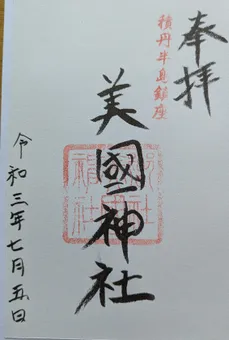 奉拝
積丹半島鎮座
美國神社
令和三年七月五日